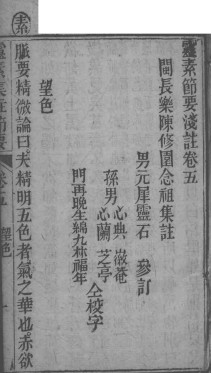 素
靈素節要淺註卷五
閩長樂陳修園念祖集註
男元犀靈石 參訂
孫男心典 徽菴
心蘭 芝亭
仝校字
門再晚生綿九林福年
望色
脈要精微論曰夫精明五色者氣之華也赤欲
卷五
望色
一